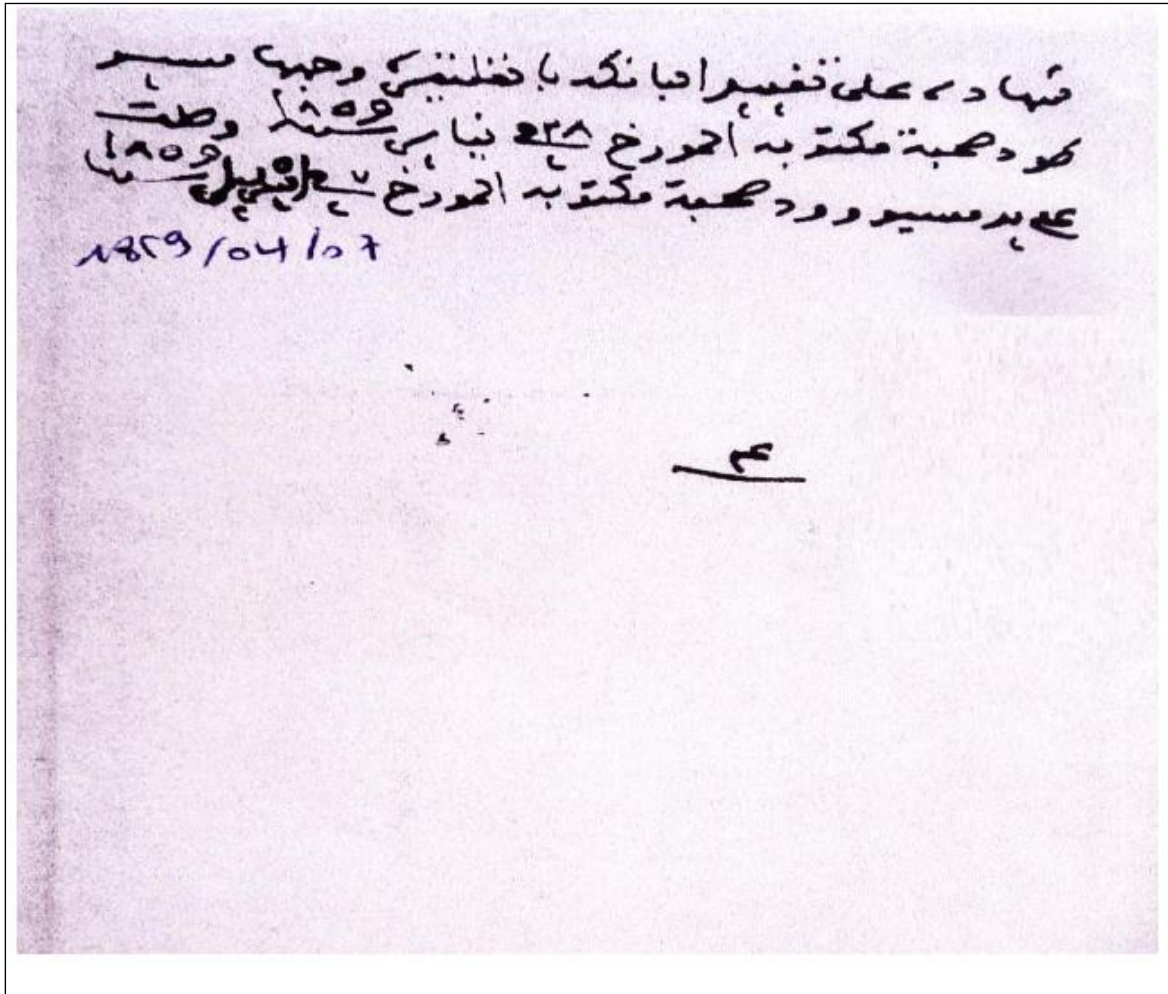 شهادة على تغيير اقبانكه بانظنيتي وجهها مسيو
كلود صحبة مكتوبه المورخ في ٢٨ يناير سنة ١٨٥٩ وصلت
على يد مسيو وود صحبة مكتوبه المورخ في ٧ افريل سنة ١٨٥٩
1859/04/07